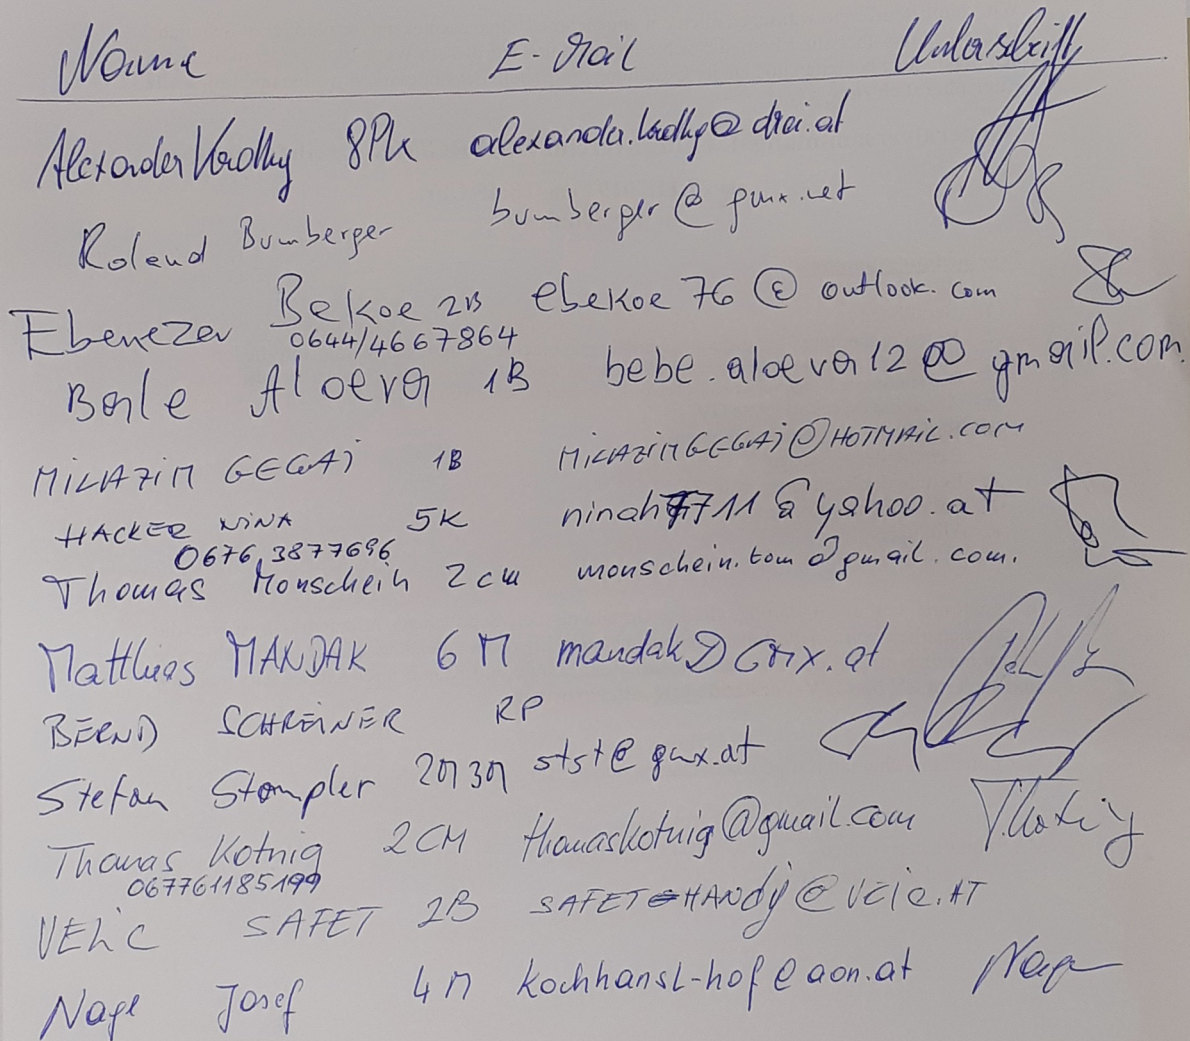 Name E-Mail Unterschrift
Alexander 8Pk
Roland Bumberger bumberger@gmx.net
Ebenezer Bekoe 2B ebekoe76@outlook.com
0644/4667864
Aloever 1B bebe.aloever12@gmail.com
MILAZIM GEGAJ 1B MILAZIMGEGAJ@HOTMAIL.COM
HACKER NINA 5K ninah7711@yahoo.at
0676 3877696
Thomas Monschein 2cm monschein.tom@gmail.com.
Matthias MANDAK 6M mandak@GMX.at
BERND SCHREINER RP
Stefan Stompler 2M3M stst@gmx.at
Thomas Kotnig 2CM thomaskotnig@gmail.com T.Kotnig
067761185199
VELIC SAFET 2B
Nagl Josef 4M kochhansl-hof@aon.at Nagl